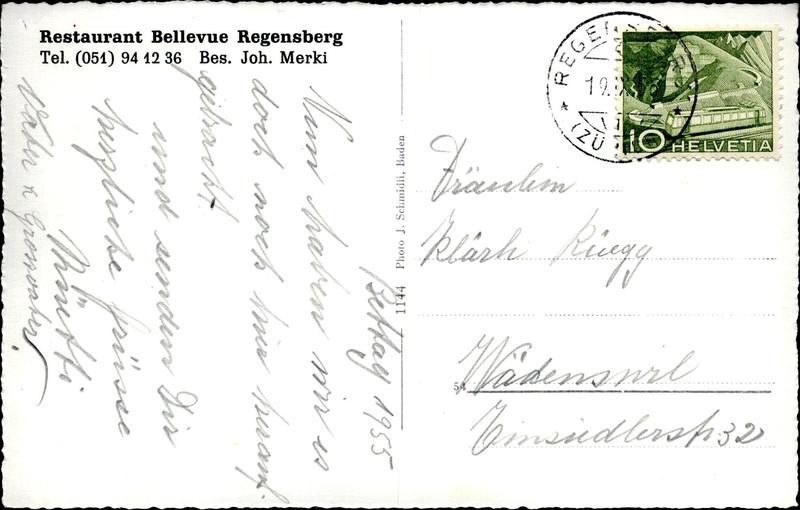 Restaurant Bellevue Regensberg
Tel. (051) 94 12 36 Bes. Joh. Merki
Bettag 1955
Nun haben wir es
doch noch hier herauf
gebracht.
und senden Dir
herzliche Grüsse
Müetti
Vater & Grossvater
1144 Photo J. Schmidli, Baden
REGENSBERG
19. IX.
(ZÜ
10 HELVETIA
Fräulein
Klärli Rüegg
54
Wädenswil
Einsiedlerstr 32